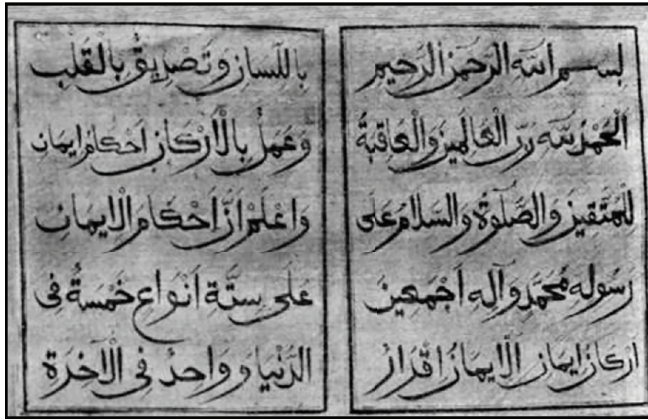 بسم الله الرحمن الرحيم
اَلْحَمْدُ لله رَبِّ الْعَالَمِينَ وَالْعَاقِبَةُ
لِلْمُتَّقِينَ وَالصَّلٰوةُ وَالسَّلَامُ عَلَى
رَسُولِهِ مُحَمَّدٍ وَآلِهِ اَجْمَعِينَ
اركان ايمان الْاِيمَانُ اِقْرَارٌ
بِاللِّسَانِ وَتَصْدِيقٌ بِالْقَلْبِ
وَعَمَلٌ بِالْاَرْكَانِ اَحْكَام ايمان
وَاعْلَمْ اَنَّ اَحْكَامَ الْاِيمَانِ
عَلَى سِتَّةِ اَنْوَاعٍ خَمْسَةٌ فِى
الدُّنْيَا وَوَاحِدٌ فِى الْآخِرَةِ